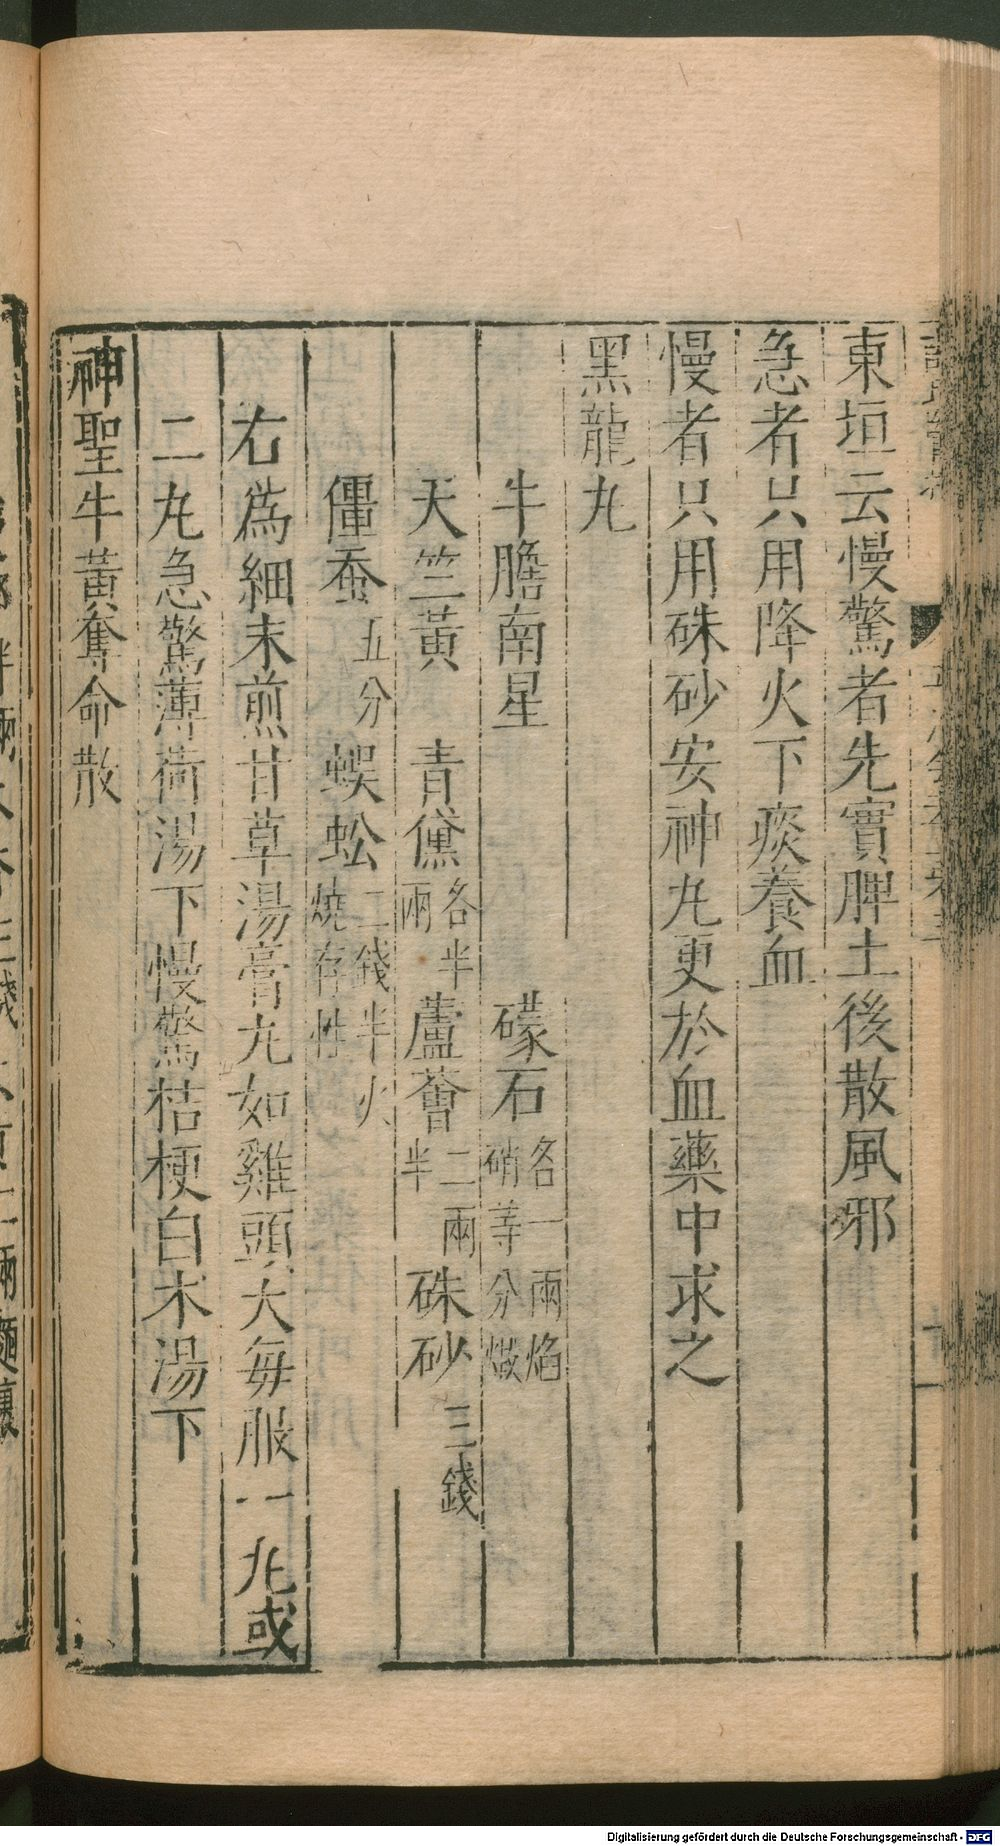 東垣云慢驚者先實脾土後散風邪
急者只用降火下痰養血
慢者只用硃砂安神丸更於血藥中求之
黑龍丸
牛膽南星　礞石各一兩焰硝等分煅
天竺黃　青黛各半兩　蘆薈二兩半　硃砂三錢
僵蚕五分　蜈蚣二錢半火燒存性
右為細末煎甘草湯膏丸如雞頭大每服一丸或
二丸急驚薄荷湯下慢驚桔梗白木湯下
神聖牛黃奪命散
Digitalisierung gefördert durch die Deutsche Forschungsgemeinschaft - DFG